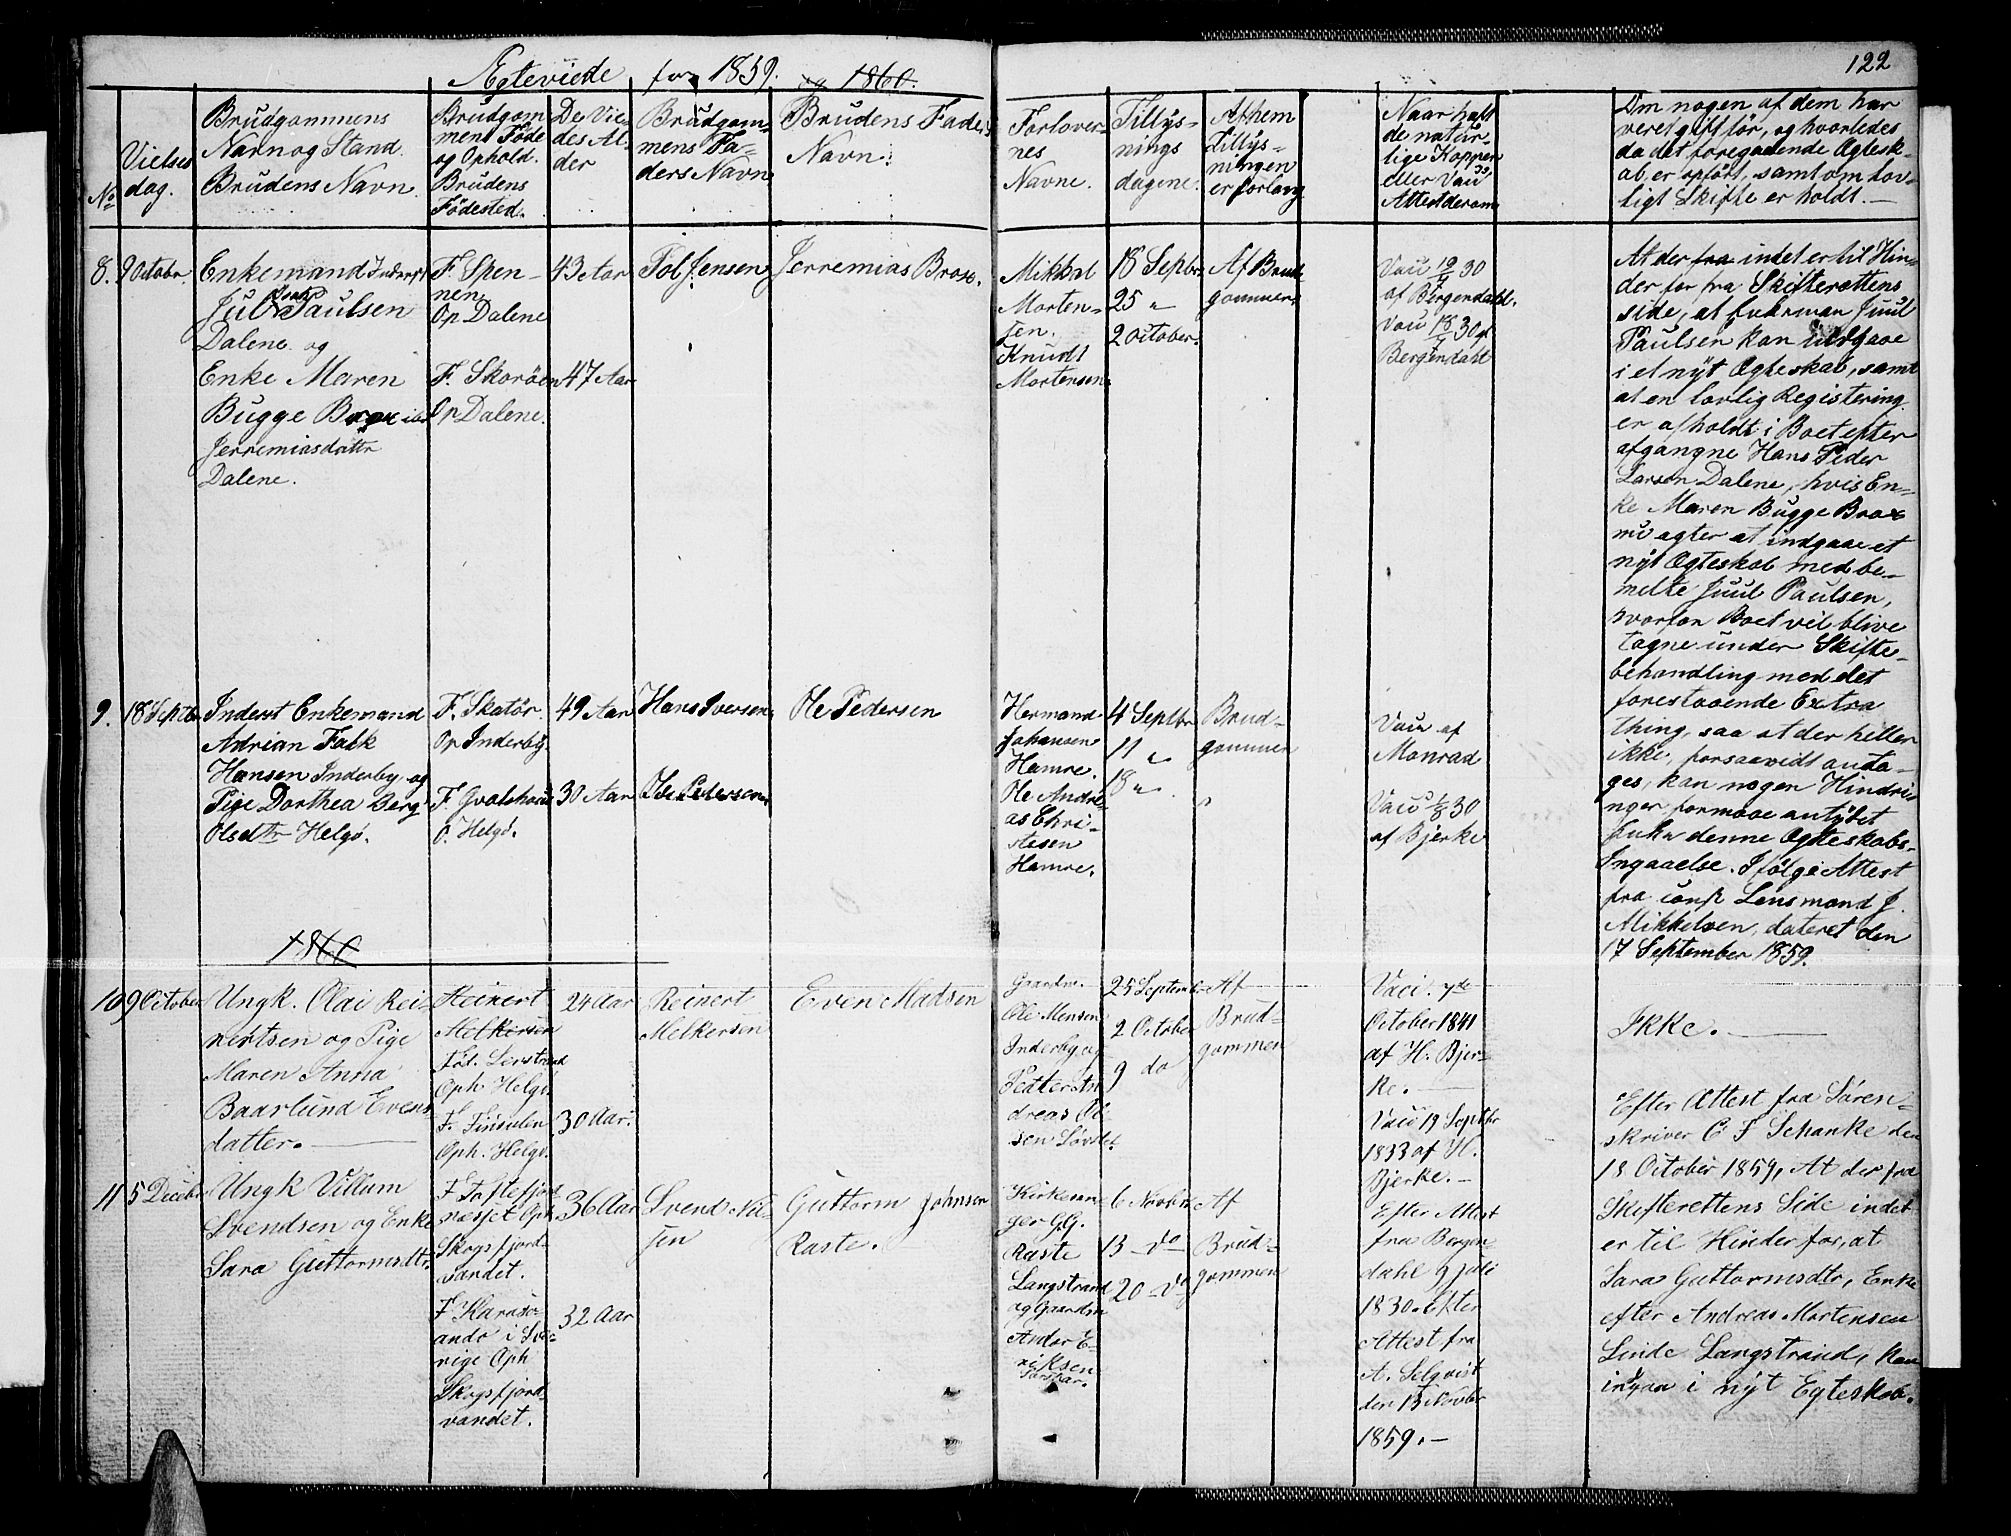 Egteviede for 1859. og 1860.
122
No
Vielses
dag.
Brudgommens
Navn og Stand.
Brudens Navn.
Brudgom
mens Føde
og Ophold.
Brudens
Fødested.
De Vie-
des Al-
der
Brudgom-
mens Fa-
ders Navn
Brudens Faders
Navn.
Forlover-
nes
Navne.
Tillys-
nings
dagene.
Af hvem
Tillys-
ningen
er forlang
Naar havt
de natur-
lige Kopper
eller Vac
Attest derom
Om nogen af dem har
veret gift før, og hvorledes
da det foregaaende Øgtesk-
ab er opført, samt om Lov-
ligt Skifte er holdt.
8. 9 Octobr.
Enkemand Inderst
Jul Paulsen
Dalene og
Enke Maren
Bugge Brox
Jerremiasdatter
Dalene.
F. Spen-
nen
Op Dalene
F. Skorøen
Op Dalene.
43 Aar
47 Aar
Pol Jensen
Jerremias Brox.
Mikkal
Morten-
sen.
Knudt
Mortensen
18 Septbr.
25 "
2 October.
Af Brud
gommen
Vau 19/7 30
af Bergendahl.
Vau 18/7 30 af
Bergendahl
At der fra intet er til Hin-
der for fra Skifterettens
side, at Enkeman Juul
Paulsen kan indgaae
i et nyt Øgteskab, samt
at en lovlig Registering
er afholdt i Boet efter
afgangne Hans Peder
Larsen Dalene, hvis En-
ke Maren Bugge Brox
nu agter at indgaae et
nyt Øgteskab med be-
melte Juul Paulsen,
hvorfor Boet vil blive
tagne under Skifte-
behandling med det
forestaaende Extra
thing, saa at der heller
ikke, forsaavidt anta-
ges, kan nogen Hindri-
nger formaae antydet
denne Øgteskabs-
Ingaaelse. Ifølge Attest
fra const Lensmand J.
Mikkelsen, dateret den
17 September 1859.
9. 18 Septbr
Inderst Enkemand
Adrian Falk
Hansen Inderby og
Pige Dorthea Berg
Olsdtr Helgø.
F. Skatør.
Op Inderby.
F. Gvalshausen
O. Helgø.
49 Aar
30 Aar
Hans Iversen
Ole Pedersen
Ole Pedersen
Hermand
Johansen
Hamre.
Ole Andre-
as Chri-
stesen
Hamre.
4 Septbr
11 "
18 "
Brud-
gommen
"
Vau af
Monrad
Vau 30
af Bjerke
1860
10 9 October
Ungk. Olai Rei-
nertsen og Pige
Maren Anna
Baarlund Evens
datter.
Reinert
Melkersen
Fød. Lenstrand
Oph. Helgø.
F. Finsulen
Oph. Helgø.
24 Aar
30 Aar.
Reinert
Melkersen
Even Madsen
Gaardm.
Ole Mensen
Inderby og
Petter An
dreas Ol-
sen Løvslet.
25 Septemb.
2 October
9 do
Af
Brud-
gommen
Vaci. 7de
October 1841
af H. Bjer-
ke.
Vaci 19 Septbr
1833 af H.
Bjerke.
Ikke.
11 5 Decebr
Ungk Villum
Svendsen og Enke
Sara Guttormsdtr.
F Toftefjord
næsset Oph
Skogsfjord
vandet.
F Karaso-
ando i Sve-
rige Oph
Skogsfjord
vandet.
36 Aar
32 Aar
Svend Nil-
sen
Guttorm Johnsen
Raste.
Kirkesan-
ger G.G.
Raste
Langstrand
og Gaardm
Andor E-
riksen
6 Novbr
13 do
20 do
Af
Brud-
gommen
Efter Attest
fra Bergen-
dahl 9 juli
1830. efter
Attest fra
A. Selqvist
den 15 Novbr
1859.
Efter Attest fra Søren-
skriver C F Schanke den
18 October 1859, At der fra
Skifterettens Side intet
er til Hinder for, at
Sara Guttormsdtr, Enke
efter Andreas Mortensen
Linde Langstrand, kan
ingaa i nyt Egteskab.